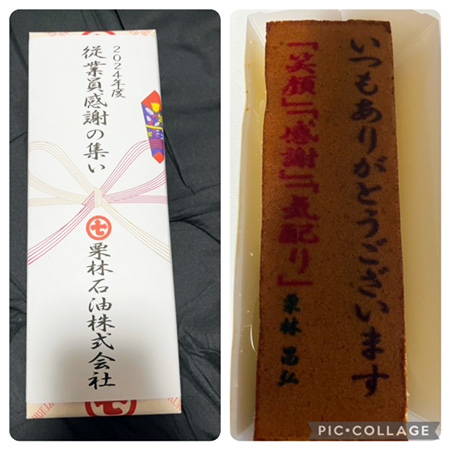 2024年度
従業員感謝の集い
七
栗林石油株式会社
いつもありがとうございます
「笑顔」「感謝」「気配り」
栗林 昌弘
PIC•COLLAGE